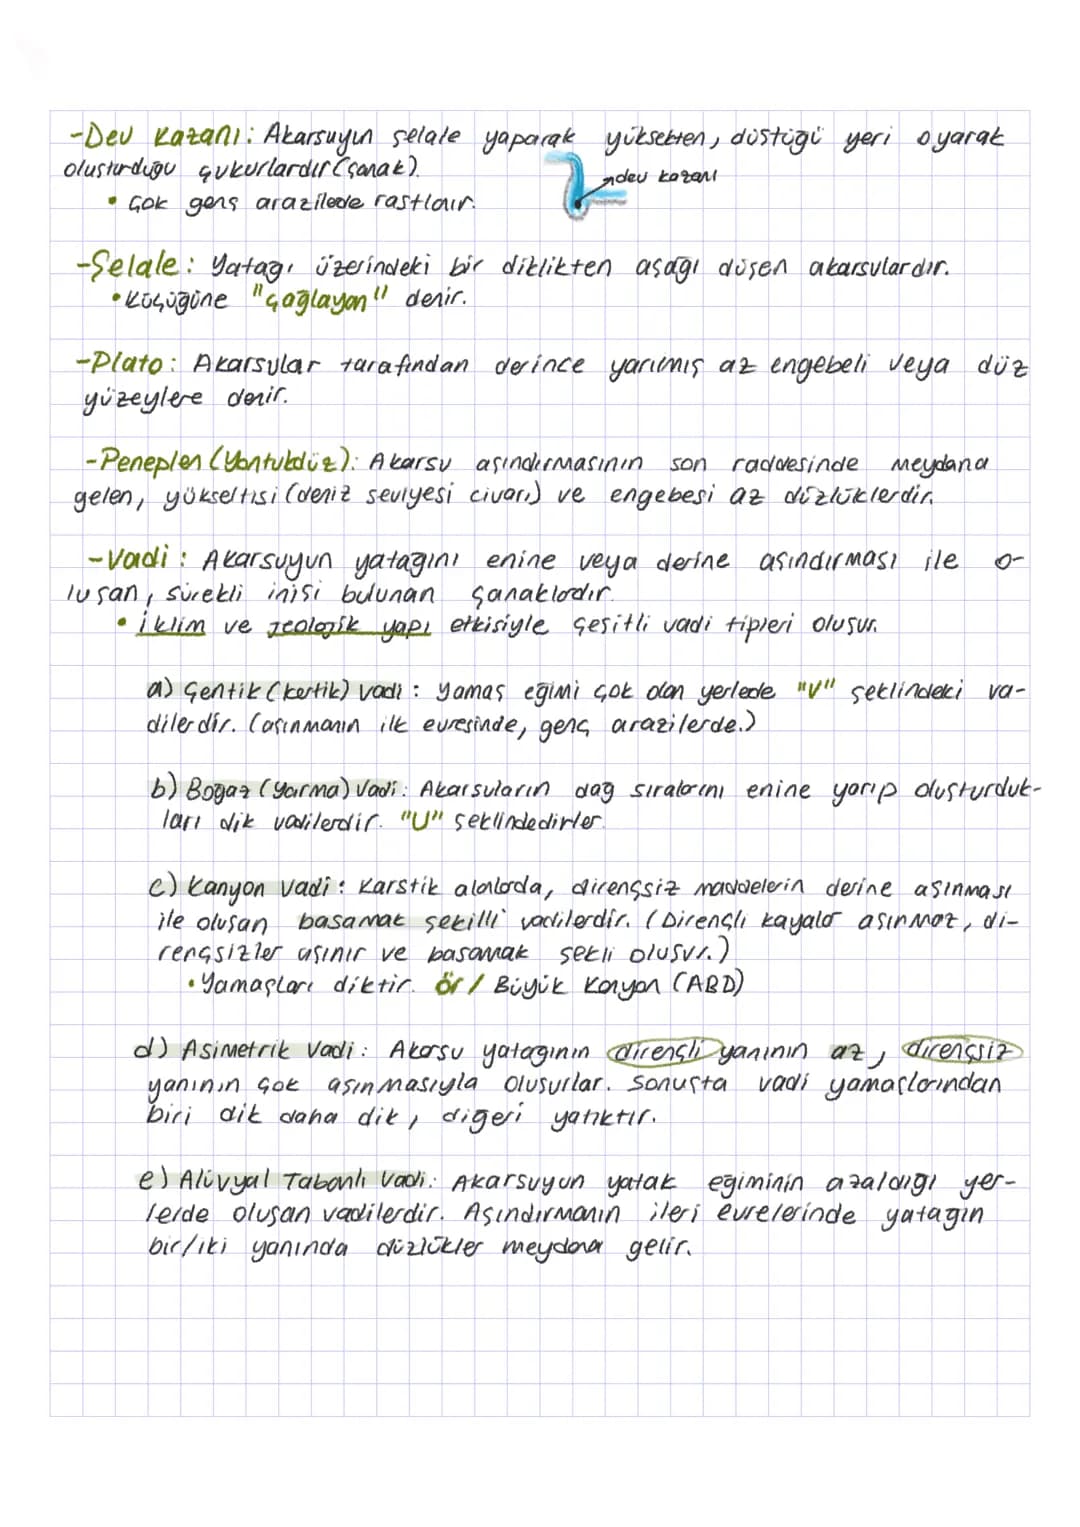 -Dev Kazanı: Akarsuyun şelale yaparak yüksekten, düştüğü yeri oyarak
oluşturduğu çukurlardır (çanak).
dev kazanı
• Çok genç arazilede rastlanır.
-Şelale: Yatağı üzerindeki bir diklikten aşağı düşen akarsulardır.
• Küçüğüne "çağlayan" denir.
-Plato: Akarsular tarafından derince yarılmış az engebeli veya düz
yüzeylere denir.
-Peneplen (Yontukdüz): Akarsu aşındırmasının son raddesinde meydana
gelen, yükseltisi (deniz seviyesi civarı) ve engebesi az düzlüklerdir.
-Vadi: Akarsuyun yatağını enine veya derine aşındırması ile o-
luşan, sürekli inişi bulunan çanaklardır.
• İklim ve jeolojik yapı etkisiyle çeşitli vadi tipleri oluşur.
a) Çentik (kertik) vadi: Yamaç eğimi çok olan yerlede "V" şeklindeki va-
dilerdir. (aşınmanın ilk evresinde, genç arazilerde.)
b) Boğaz (Yarma) Vadi: Akarsuların dağ sıralarını enine yarıp oluşturduk-
ları dik vadilerdir. "U" şeklindedirler.
c) Kanyon Vadi: Karstik alanlarda, dirençsiz maddelerin derine aşınması
ile oluşan basamak şekilli vadilerdir. (Dirençli kayalar aşınmaz, di-
rençsizler aşınır ve basamak şekli oluşur.)
• Yamaçları diktir. ör/ Büyük Kanyon (ABD)
d) Asimetrik Vadi: Akarsu yatağının dirençli yanının az, dirençsiz
yanının çok aşınmasıyla oluşurlar. Sonuçta vadi yamaçlarından
biri dik daha dik, diğeri yatıktır.
e) Alüvyal Tabanlı Vadi: Akarsuyun yatak eğiminin azaldığı yer-
lerde oluşan vadilerdir. Aşındırmanın ileri evrelerinde yatağın
bir/iki yanında düzlükler meydana gelir.